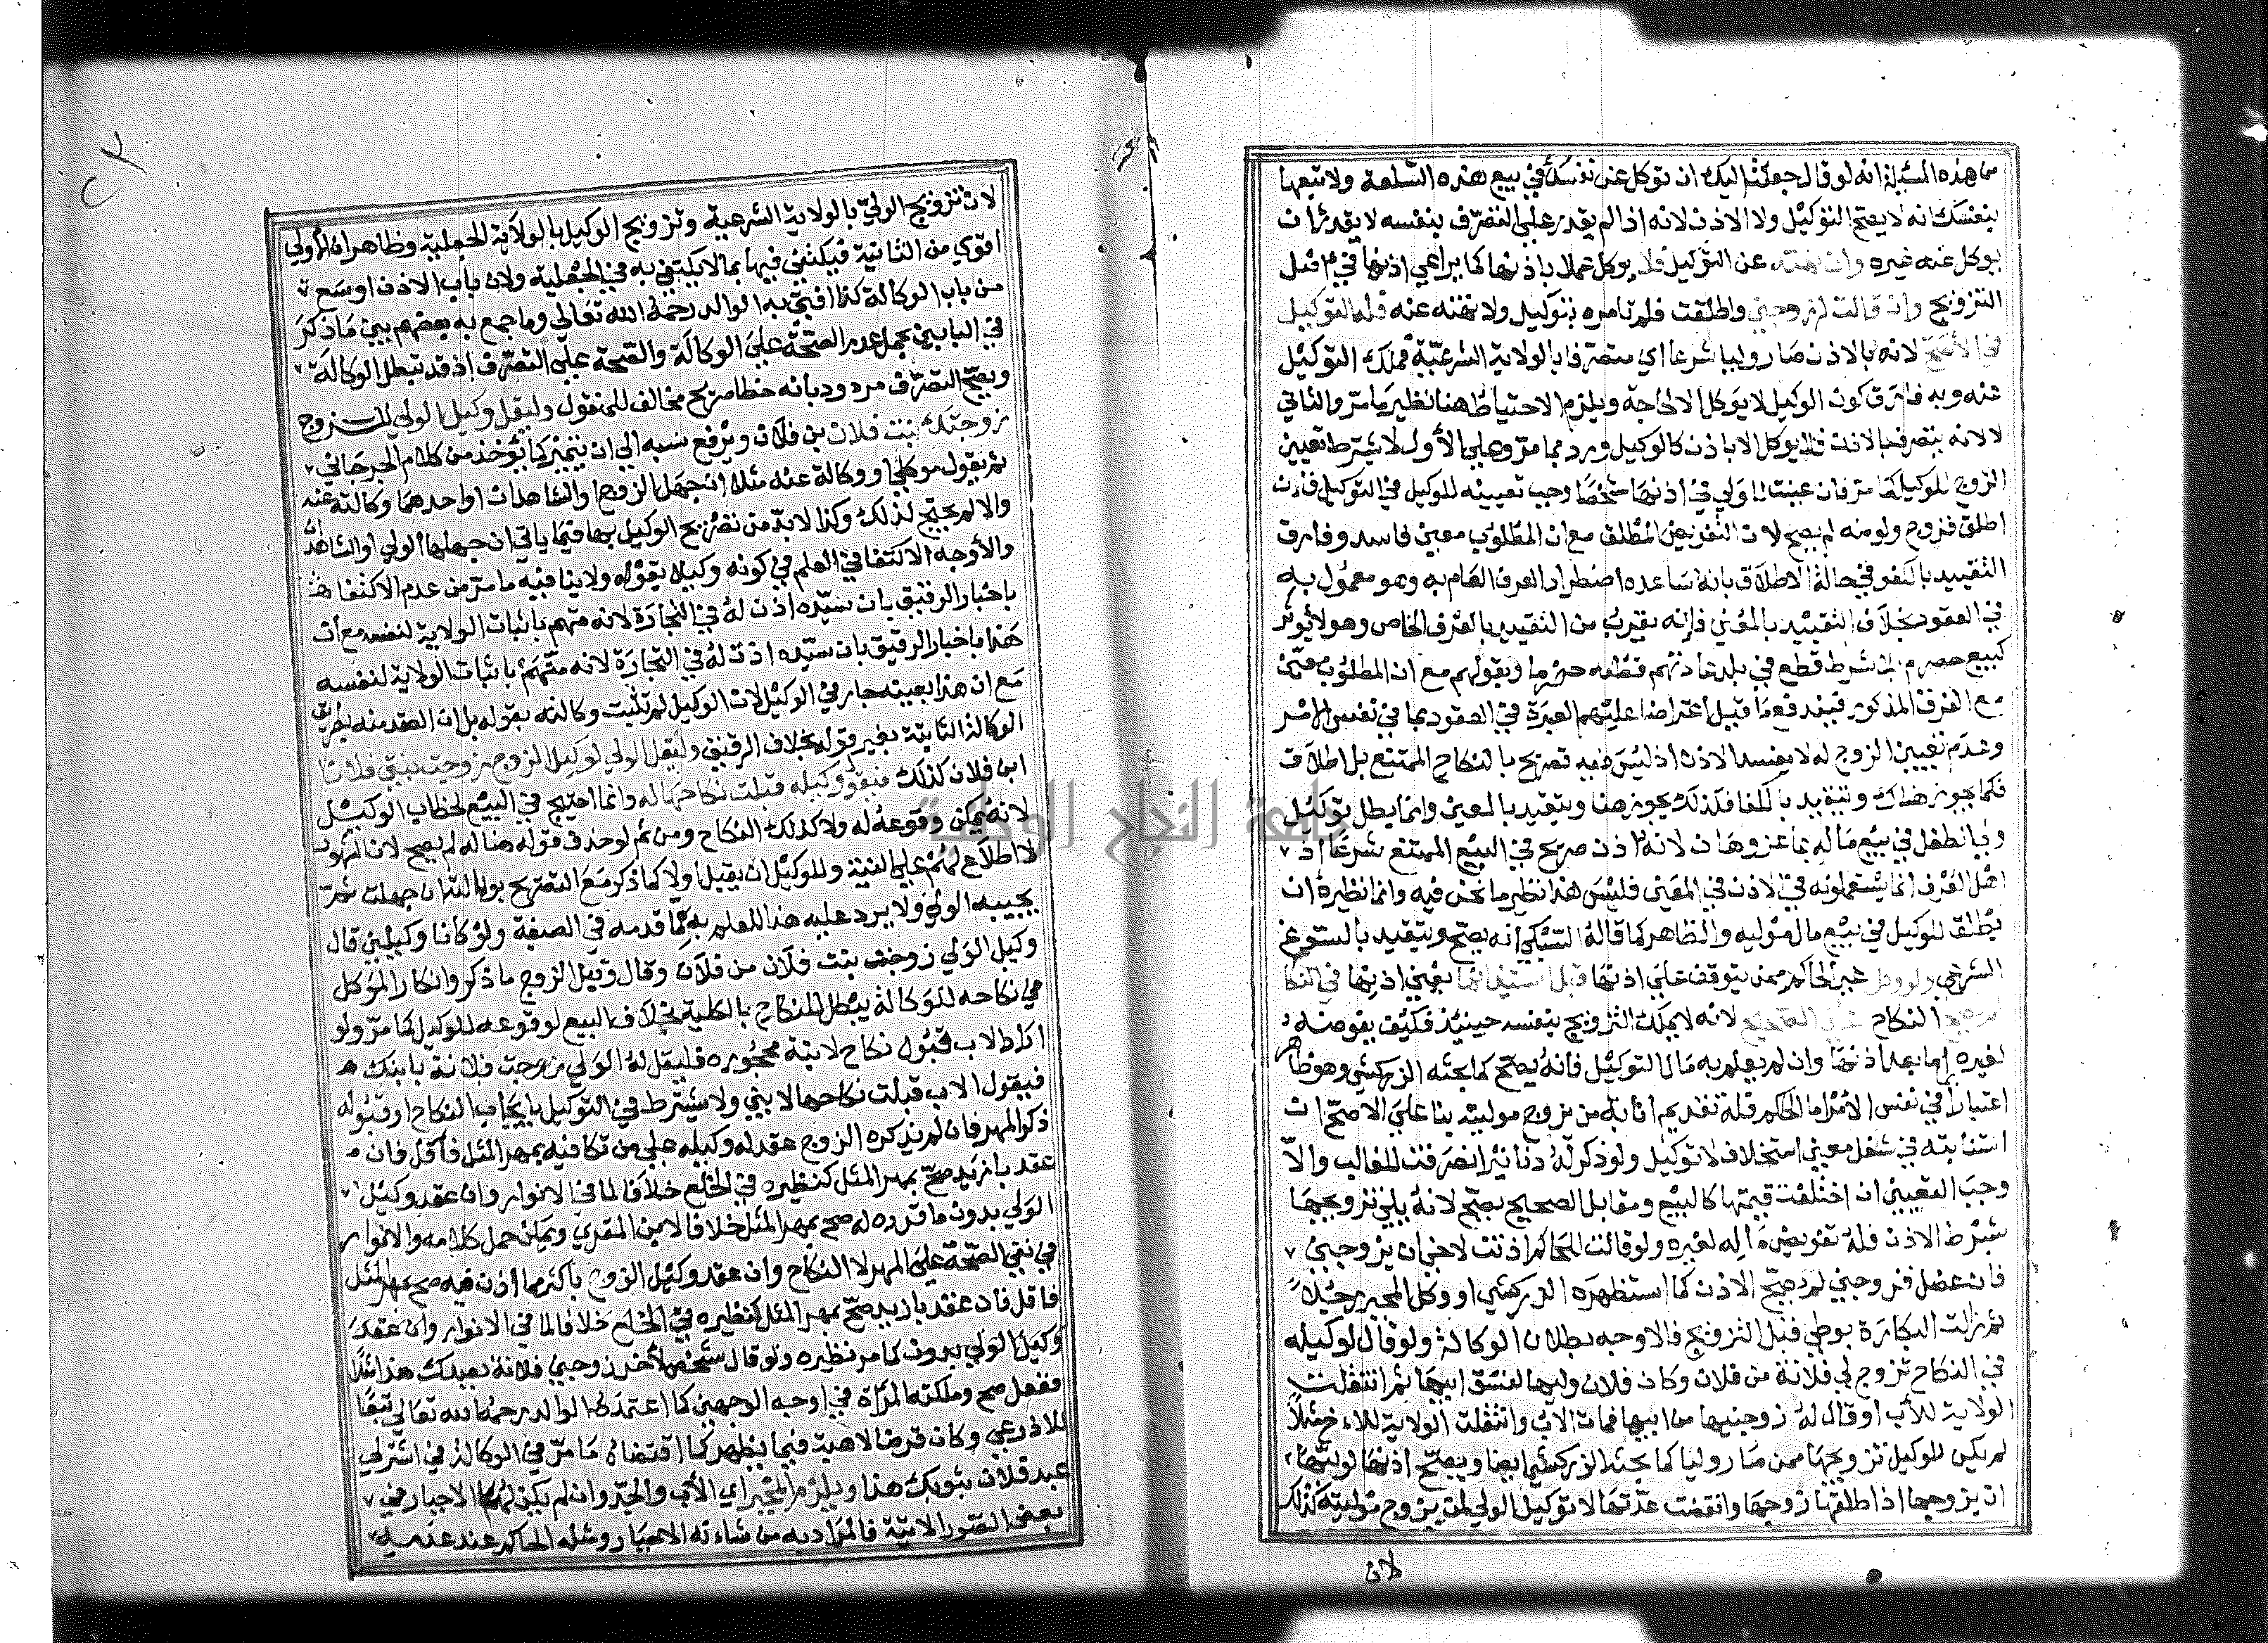 من هذه المسئلة انه لو قال جعلت اليك ان توكل عن نفسك في بيع هذه السلعة ولا تبعها
بنفسك انه لا يصح التوكيل ولا الاذن لانه اذا لم يقدر على التصرف بنفسه لا يقدر ان
يوكل عنه غيره وان نهته عن التوكيل فلا يوكل عملا باذنها كما يراعي اذنها في قبل
التزويج وان قالت له زوجني واطلقت فلم تامره بتوكيل ولا نهته عنه فله التوكيل
في الأصح لانه بالاذن صار وليا شرعا اي متصرفا بالولاية الشرعية فملك التوكيل
عنه وبه فارق كون الوكيل لا يوكل الا لحاجة ويلزم الاحتياط هنا نظير ما مر والثاني
لا لانه يتصرف بالاذن فلا يوكل الا باذن كالوكيل ورد بما مر وعلي الأول لا يشترط تعيين
الزوج للوكيل كما مر فان عينت للولي في اذنها شخصا وجب تعيينه للوكيل في التوكيل فان
اطلق فزوج ولو منه لم يصح لان التفويض المطلق مع ان المطلوب معين فاسد وفارق
التقييد بالكفو في حالة الاطلاق بانه ساعده اضطراد العرف العام به وهو معمول به
في العقود بخلاف التقييد بالمعين فانه يقرب من التقييد بالعرف الخاص وهو لا يؤثر
كبيع حصرم بلا شرط قطع في بلد عادتهم قطعه حصرما وبقولهم مع ان المطلوب معين
مع العرف المذكور فيندفع ما قيل اعتراضا عليهم العبرة في العقود بما في نفس الامر
وعدم تعيين الزوج له لا يفسد الاذن اذ ليس فيه تصريح بالنكاح الممتنع بل اطلاق
فكما يجوز هناك ويتقيد بالكفا فكذلك يجوز هنا ويتقيد بالمعين وانما يطل توكيل
ولي الطفل في بيع ماله بما عز وهان لانه اذن صريح في البيع الممتنع شرعا اذ
اهل العرف انما يستعملونه في الاذن في المعين فليس هذا نظير ما نحن فيه وانما نظيره ان
يطلق للوكيل في بيع مال موليه والظاهر كما قاله السبكي انه يصح ويتقيد بالمسوغ
الشرعي ولو وكل غير الحاكم ممن يتوقف على اذنها قبل استيذانها يعني اذنها في النكا
النكاح لانه لا يملك التزويج بنفسه حينيذ فكيف يفوضه
لغيره اما بعد اذنها وان لم يعلم به حال التوكيل فانه يصح كما بحثه الزركشي وهو ظاهر
اعتبارا في نفس الامر اما الحاكم فله تقديم انابة من يزوج موليته بنا على الاصح ان
استنابته في شغل معين استخلاف لا توكيل ولو ذكر له دنانير انصرفت للغالب والا
وجب التعيين ان اختلفت قيمتها كالبيع ومقابل الصحيح يصح لانه يلي تزويجها
بشرط الاذن فله تفويض ماله لغيره ولو قالت للحاكم اذنت لاخي ان يزوجني
فان عضل فزوجني لم يصح الاذن كما استظهره الزركشي او وكل المجبر رجلا
ثم زالت البكارة بوطي قبل التزويج فالاوجه بطلان الوكالة ولو قال لوكيله
في النكاح تزوج لي فلانة من فلان وكان فلان وليها لفسق ابيها ثم انتقلت
الولاية للأب او قال له زوجنيها من ابيها فمات الاب وانتقلت الولاية للاخ مثلا
لم يكن للوكيل تزويجها ممن صار وليا كما بحثه الزركشي ايضا ويصح اذنها لوليها
ان يزوجها اذا طلقها زوجها وانقضت عدتها لا توكيل الولي لمن يزوج موليته كذلك
لان
لان تزويج الولي بالولاية الشرعية وتزويج الوكيل بالولاية الجعلية وظاهر ان الأولى
اقوي من الثانية فيكتفي فيها بما لا يكتفي به في الجعلية ولان باب الاذن اوسع
من باب الوكالة كذا افتى به الوالد رحمه الله تعالى وما جمع به بعضهم بين ما ذكر
في البابين بحمل عدم الصحة على الوكالة والصحة على التصرف إذ قد تبطل الوكالة
ويصح التصرف مردود بانه خطا صريح مخالف للمنقول وليقل وكيل الولي للزوج
زوجتك بنت فلان بن فلان ويرفع نسبه الي ان يتميز كما يؤخذ من كلام الجرجاني
ثم يقول موكلي او وكالة عنه مثلا ان جهل الزوج والشاهدان او احدهما وكالته عنه
والا لم يحتج لذلك وكذا لا بد من تصريح الوكيل بها فيما ياتي ان جهلها الولي او الشاهد
والأوجه الاكتفا في العلم في كونه وكيلا بقوله ولا ينافيه ما مر من عدم الاكتفا هـ
باخبار الرقيق بان سيده اذن له في التجارة لانه متهم باثبات الولاية لنفسه مع ان
هذا باخبار الرقيق بان سيده اذن له في التجارة لانه متهم باثبات الولاية لنفسه
مع ان هذا بعينه جار في الوكيل لان الوكيل لم تثبت وكالته بقوله بل ان العقد منه بطريق
الوكالة الثابتة بغير قوله بخلاف الرقيق وليقل الولي لوكيل الزوج زوجت بنتي فلانا
ابن فلان كذلك فيقول وكيله قبلت نكاحها له وانما احتيج في البيع لخطاب الوكيل
لانه يمكن وقوعه له ولا كذلك النكاح ومن ثم لو حذف قوله هنا له لم يصح لان الشهود
لا اطلاع لهم على النية وللوكيل ان يقبل أولا كما ذكر مع التصريح بوكالته ان جهلت ثم
يجيبه الولي ولا يرد عليه هذا للعلم به مما قدمه في الصيغة ولو كانا وكيلين قال
وكيل الولي زوجت بنت فلان من فلان وقال وكيل الزوج ما ذكر وانكار الموكل
في نكاحه للوكالة يبطل النكاح بالكلية بخلاف البيع لوقوعه للوكيل كما مر ولو
اراد الاب قبول نكاح لابنه محجوره فليقل له الولي زوجت فلانة بابنك هـ
فيقول الاب قبلت نكاحها لابني ولا يشترط في التوكيل بايجاب النكاح او قبوله
ذكر المهر فان لم يذكره الزوج عقد له وكيله على من تكافيه بمهر المثل فأقل فان
عقد بازيد صح بمهر المثل كنظيره في الخلع خلافا لما في الانوار وان عقد وكيل
الولي بدون ما قدره له صح بمهر المثل خلافا لابن المقري ويمكن حمل كلامه والانوار
في نفي الصحة على المهر لا النكاح وان عقد وكيل الزوج باكثر مما اذن فيه صح بمهر المثل
فاقل فان عقد بازيد صح بمهر المثل كنظيره في الخلع خلافا لما في الانوار وان عقد
وكيل الولي بدون كما مر نظيره ولو قال شخص لآخر زوجني فلانة بعبدك هذا مثلا
ففعل صح وملكته المرأة في اوجه الوجهين كما اعتمده الوالد رحمه الله تعالى تبعا
للاذرعي وكان قرضا لا هبة فيما يظهر كما اقتضاه ما مر في الوكالة في اشتر لي
عبد فلان بثوبك هذا ويلزم المجبر اي الأب والجد وان لم يكن لهما الاجبار في
بعض الصور الاتية فالمراد به من شانه الاجبار ومثله الحاكم عند عدمه